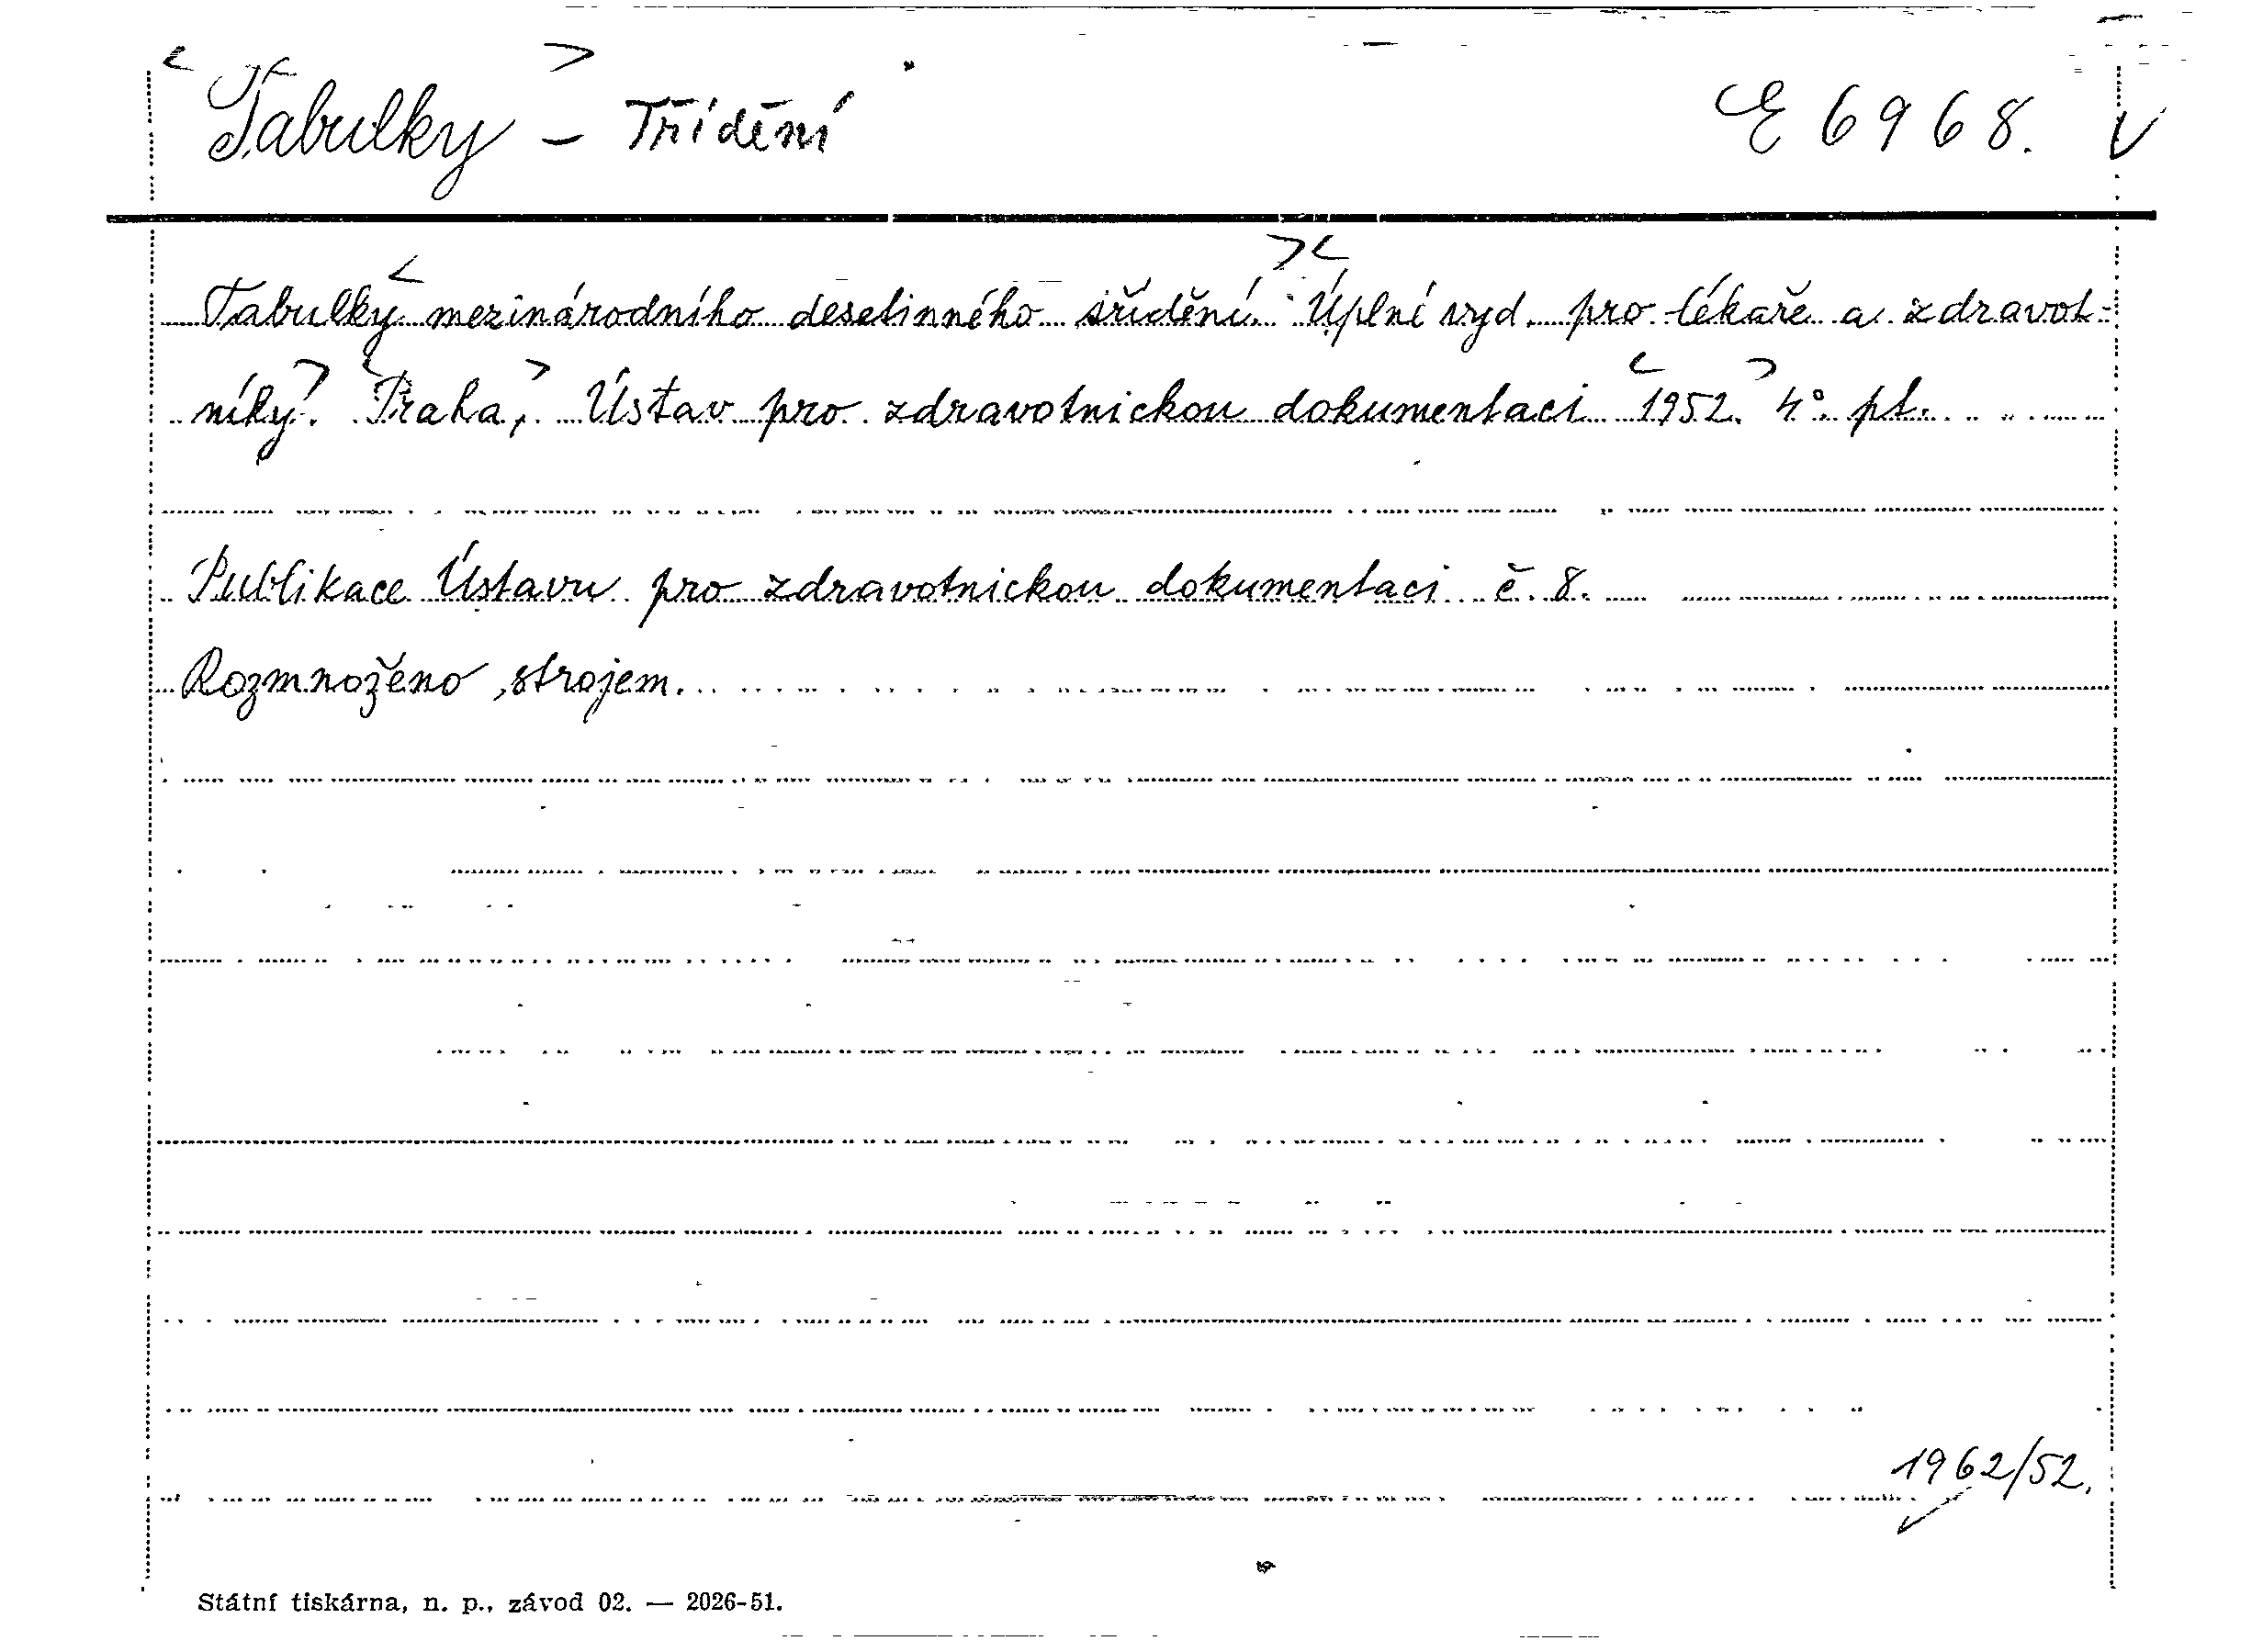 Tabulky - Třídění E 6968.
Tabulky mezinárodního desetinného třídění. Úplné vyd. pro lékaře a zdravot-
níky. Praha, Ústav pro zdravotnickou dokumentaci 1952. 4° pt.
Publikace Ústavu pro zdravotnickou dokumentaci č. 8.
Rozmnoženo strojem.
1962/52.
Státní tiskárna, n. p., závod 02. — 2026-51.